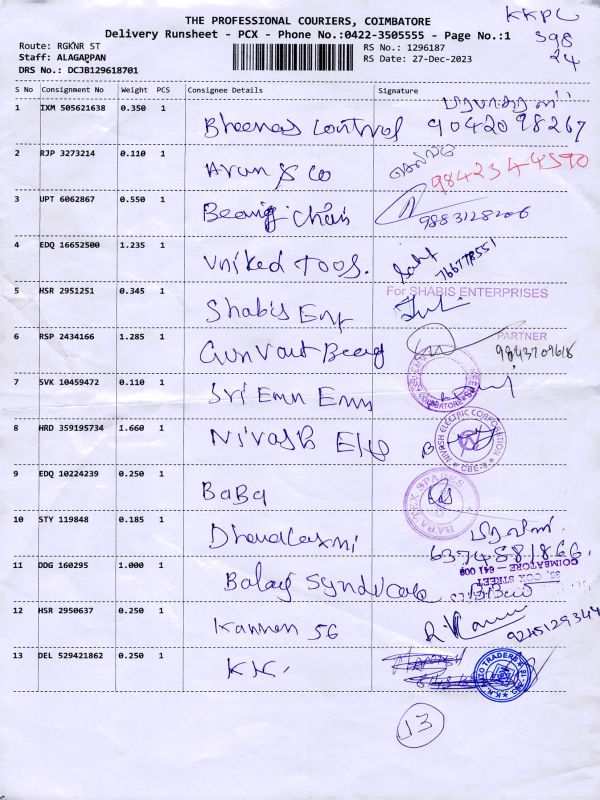 THE PROFESSIONAL COURIERS, COIMBATORE
KKPC
Delivery Runsheet - PCX - Phone No.:0422-3505555 - Page No.:1
398
24
Route: RGKNR ST
RS No.: 1296187
Staff: ALAGAPPAN
RS Date: 27-Dec-2023
DRS No.: DCJB129618701
S No Consignment No Weight PCS Consignee Details Signature
1 IXM 505621638 0.350 1 Bheenas Control 9042098267
2 RJP 3273214 0.110 1 Arun & Co 9842344590
3 UPT 6062867 0.550 1 9883128206
4 EDQ 16652500 1.235 1 United Toos.
5 HSR 2951251 0.345 1 Shabis Ent
For SHABIS ENTERPRISES
PARTNER
6 RSP 2434166 1.285 1 Gunvant Bearg 9843709618
7 SVK 10459472 0.110 1 Sri Emm Emm
COIMBATORE
8 HRD 359195734 1.660 1 Nivash Ele
NIVASH ELECTRIC CORPORATION
CBE-9
9 EDQ 10224239 0.250 1 Baba
BABA TEX SPARES
10 STY 119848 0.185 1 Dhanalaxmi
6374881866
11 DDG 160295 1.000 1 Balaji Syndicate
COX STREET
COIMBATORE - 641 009
12 HSR 2950637 0.250 1 Kannan SG R. Kannan 9245129344
13 DEL 529421862 0.250 1 KK.
TRADERS
13